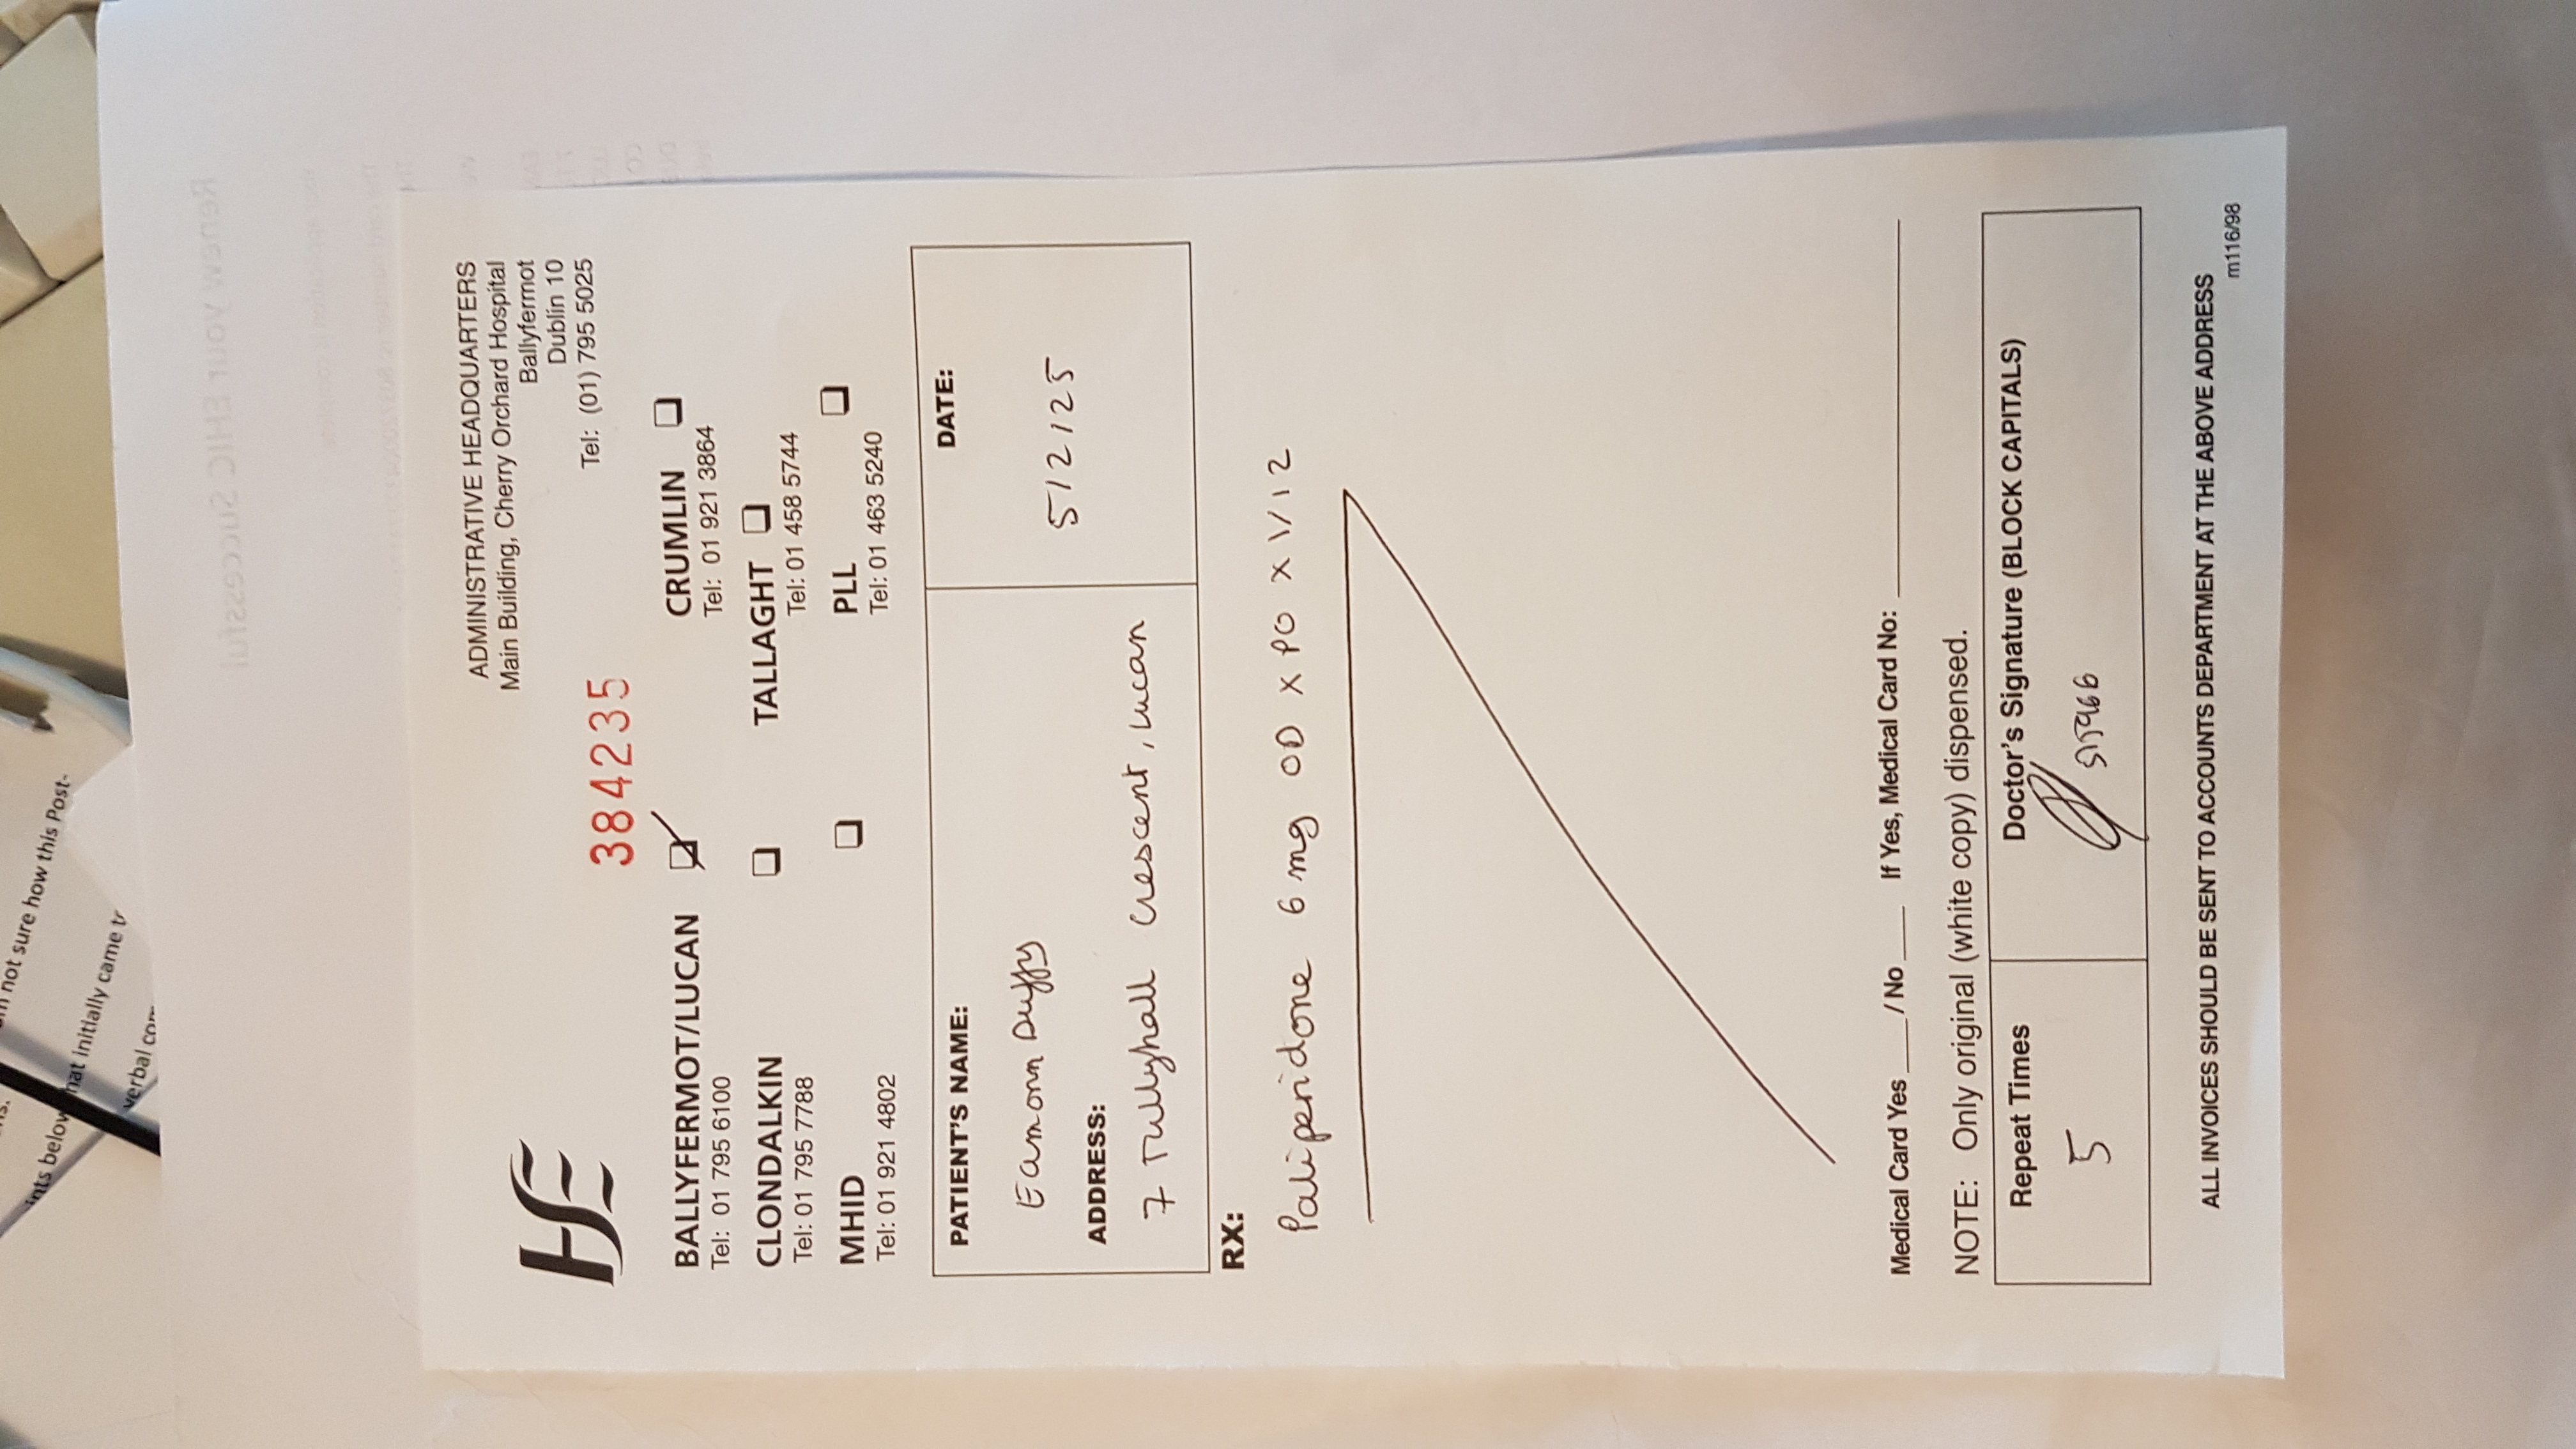 not sure how this Post-
ints below that initially came to
verbal com
Renew your EHIC Successful
Your application is complete
HSE
ADMINISTRATIVE HEADQUARTERS
Main Building, Cherry Orchard Hospital
Ballyfermot
Dublin 10
Tel: (01) 795 5025
384235
BALLYFERMOT/LUCAN
Tel: 01 795 6100
CRUMLIN
Tel: 01 921 3864
CLONDALKIN
Tel: 01 795 7788
TALLAGHT
Tel: 01 458 5744
MHID
Tel: 01 921 4802
PLL
Tel: 01 463 5240
PATIENT'S NAME:
Eamonn Duffy
DATE:
5/2/25
ADDRESS:
7 Tullyhall Crescent, Lucan
RX:
Paliperidone 6 mg OD x PO x 1/12
Medical Card Yes ____ / No ____ If Yes, Medical Card No: ____
NOTE: Only original (white copy) dispensed.
Repeat Times
5
Doctor's Signature (BLOCK CAPITALS)
ALL INVOICES SHOULD BE SENT TO ACCOUNTS DEPARTMENT AT THE ABOVE ADDRESS
m116/98